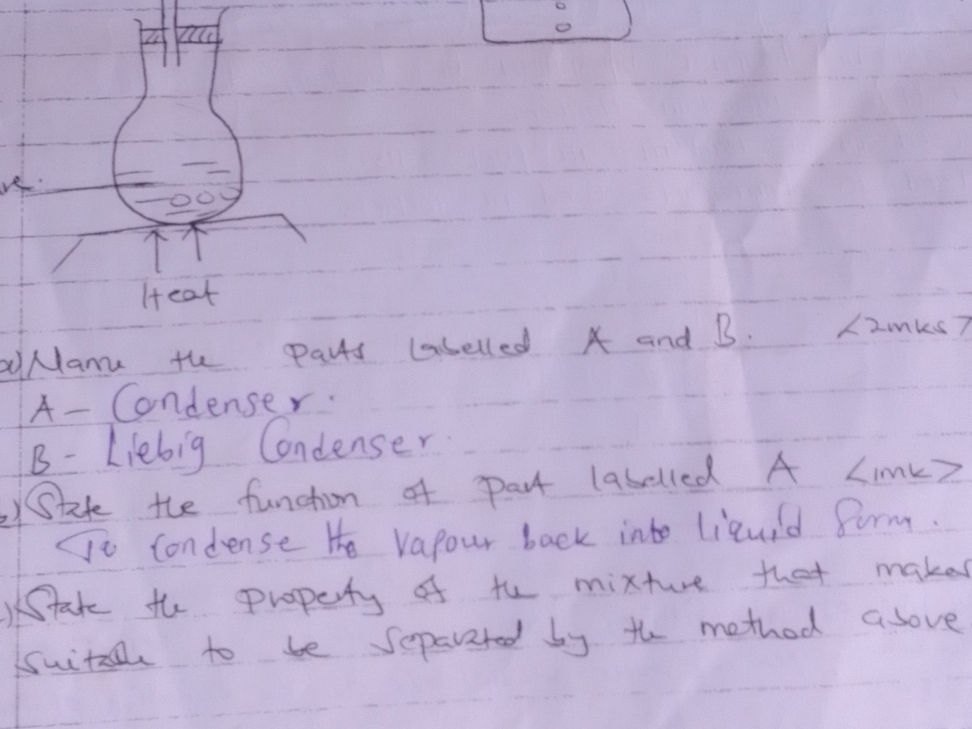 Heat
a) Name the parts labelled A and B. <2mks>
A - Condenser.
B - Liebig Condenser.
State the function of part labelled A <1mk>
To condense the vapour back into liquid form.
State the property of the mixture that makes
suitable to be separated by the method above